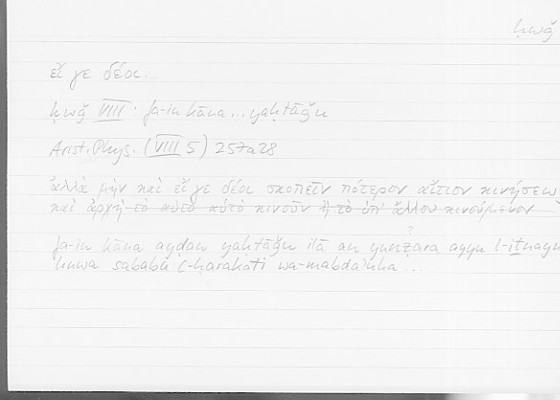 ḥwǧ
εἴ γε δέοι...
ḥwǧ VIII : fa-in kāna .. yaḥtāǧu
Arist. Phys. (VIII 5) 257a28
ἀλλὰ μὴν καὶ εἴ γε δέοι σκοπεῖν πότερον αἴτιον κινήσεως
καὶ ἀρχὴ τὸ αὐτὸ αὑτὸ κινοῦν ἢ τὸ ὑπ' ἄλλου κινούμενον
fa-in kāna ayḍan yaḥtāǧu ilā an yunẓara ayyu l-iṯnayn
huwa sababu l-ḥarakati wa-mabdaʾuhā ...